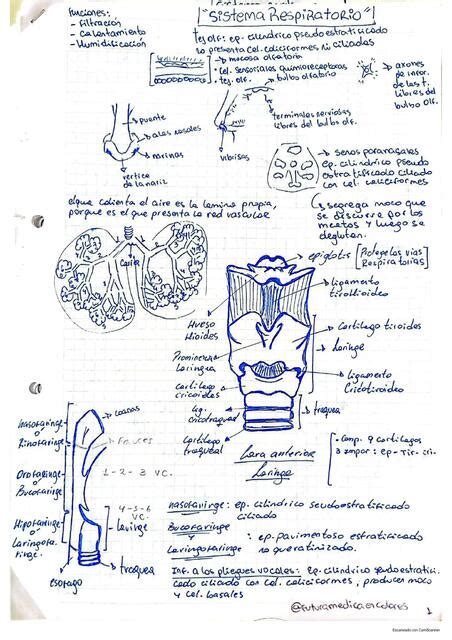 Funciones:
- Filtración
- Calentamiento
- Humidificación
"Sistema Respiratorio"
tej. olf: ep. cilíndrico pseudoestratificado
no presenta cel. caliciformes ni ciliadas
mucosa olfatoria
Cel. sensoriales quimioreceptoras
tej. olf.
bulbo olfatorio
axones
de infor.
de las t.
libres del
bulbo olf.
puente
alas nasales
narinas
vertice
de la nariz
vibrisas
terminales nerviosas
libres del bulbo olf.
senos paranasales
ep. cilíndrico pseudo
estratificado ciliado
con cel. caliciformes
segrega moco que
se discurre por los
meatos y luego se
deglute.
el que calienta el aire es la lamina propia,
porque es el que presenta la red vascular
Carir
epiglotis
[Protege las vias
Respiratorias]
ligamento
tirollioideo
Hueso
Hioides
Cartílago tiroides
laringe
Prominencia
laringea
ligamento
Cricotiroideo
cartílago
cricoides
lig.
cricotraqueal
traquea
Cartílago
traqueal
Cara anterior
Laringe
- Comp. 9 cartílagos
3 impor: ep-Tir-cri.
coanas
nasofaringe
o
Rinofaringe
Fauces
Orofaringe
o
Bucofaringe
1-2-3 VC.
4-5-6
VC.
laringe
Hipofaringe
o
Laringofa
ringe
esofago
traquea
nasofaringe: ep. cilíndrico seudoestratificado
ciliado
Bucofaringe
y
Laringofaringe
: ep. Pavimentoso estratificado
no queratinizado.
Inf. a los pliegues vocales: Ep. cilíndrico seudoestratifi
cado ciliado con cel. caliciformes, producen moco
y cel. basales
@futuramedicaencolores
1
Escaneado con CamScanner